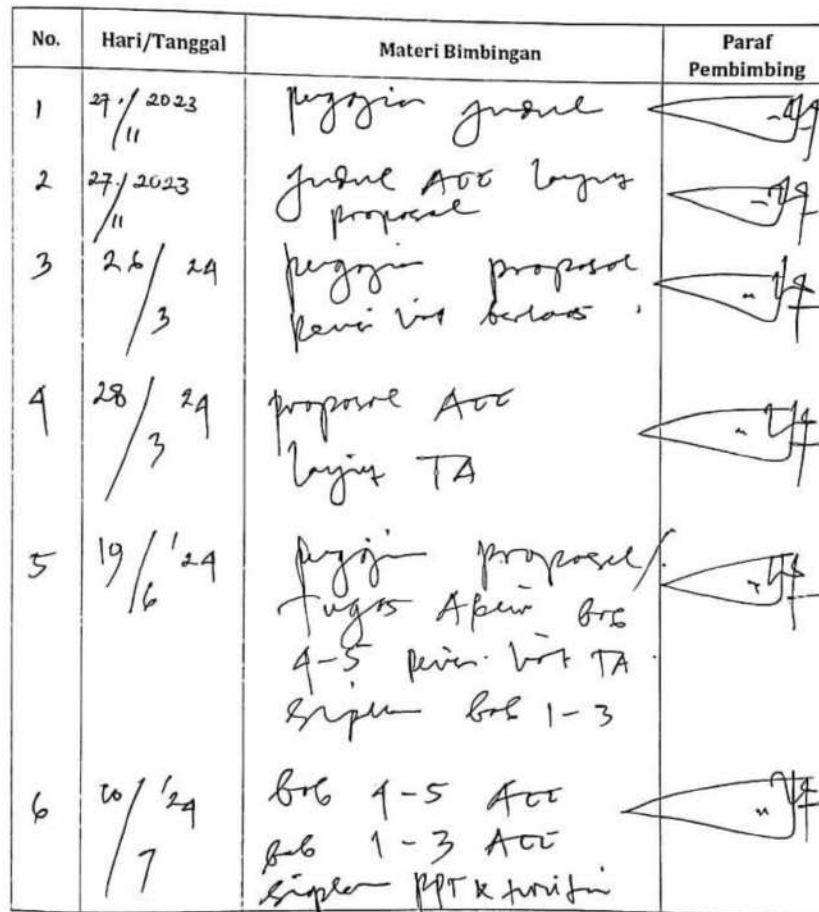 No. Hari/Tanggal Materi Bimbingan Paraf Pembimbing
1 27/11 2023 pengajian judul
2 27/11 2023 judul ACC lanjut
proposal
3 26/3 24 pengajian proposal
revisi lihat berkas.
4 28/3 24 proposal ACC
lanjut TA
5 19/6 '24 pengajian proposal/
Tugas Akhir bab
4-5 revisi lihat TA.
siapkan bab 1-3
6 10/7 '24 bab 4-5 ACC
bab 1-3 ACC
siapkan PPT & turnitin